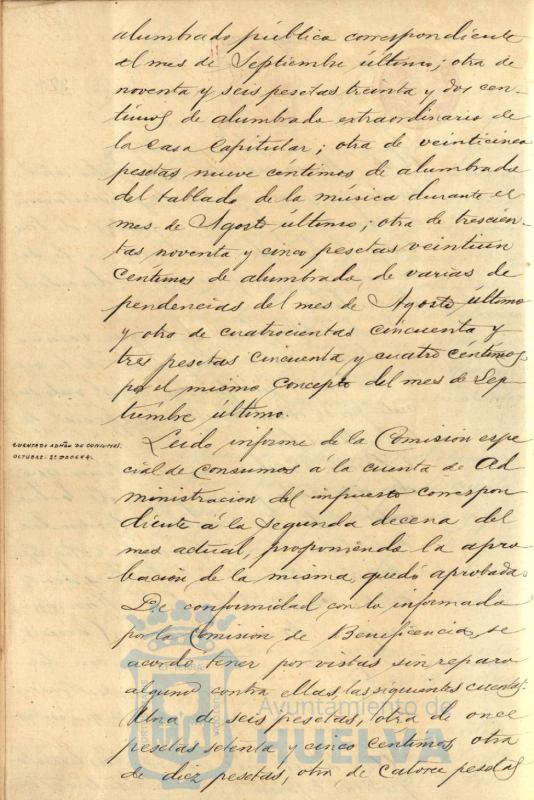 alumbrado pública correspondiente
el mes de Septiembre último; otra de
noventa y seis pesetas treinta y dos cen-
timos de alumbrado extraordinario de
la Casa Capitular; otra de veinticinco
pesetas nueve centimos de alumbrado
del tablado de la música durante el
mes de Agosto último; otra de trescien-
tas noventa y cinco pesetas veintiun
centimos de alumbrado de varias de
pendencias del mes de Agosto último
y otro de cuatrocientas cincuenta y
tres pesetas cincuenta y cuatro céntimos
por el mismo concepto del mes de Sep-
tiembre último.
CUENTA DE ADMÓN DE CONSUMOS.
OCTUBRE. 2ª DECENA.
Leido informe de la Comisión espe
cial de Consumos á la cuenta de Ad
ministracion del impuesto correspon
diente á la segunda decena del
mes actual, proponiendo la apro
bacion de la misma, quedó aprobada.
De conformidad con lo informado
por la Comisión de Beneficencia, se
acordó tener por vistas sin reparo
alguno contra ellas, las siguientes cuentas:
Una de seis pesetas, otra de once
pesetas setenta y cinco centimos otra
de diez pesetas, otra de catorce pesetas
Ayuntamiento de
HUELVA